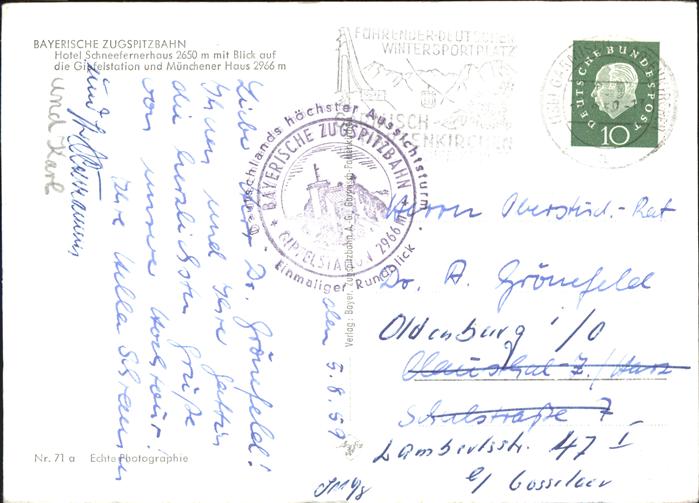 BAYERISCHE ZUGSPITZBAHN
Hotel Schneefernerhaus 2650 m mit Blick auf
die Gipfelstation und Münchener Haus 2966 m
FÜHRENDER DEUTSCHER
WINTERSPORTPLATZ
DEUTSCHE BUNDESPOST
10
Deutschlands höchster Aussichtsturm
BAYERISCHE ZUGSPITZBAHN
GIPFELSTATION 2966 m
Einmaliger Rundblick
den 5.8.59
Lieber Herr Dr. Grönefeld!
Ihnen und Ihrer Gattin
die herzlichsten Grüße
von unserer Hochtour!
Ihre Ulla Schramm
und
und Karl
Herrn Oberstud.-Rat
Dr. A. Grönefeld
Oldenburg i/O
Clausthal-Z./Harz
Schulstraße 7
Lambertistr. 47 I
b/ Gosselaer
Verlag: Bayer. Zugspitzbahn A.G.
Nr. 71 a Echte Photographie